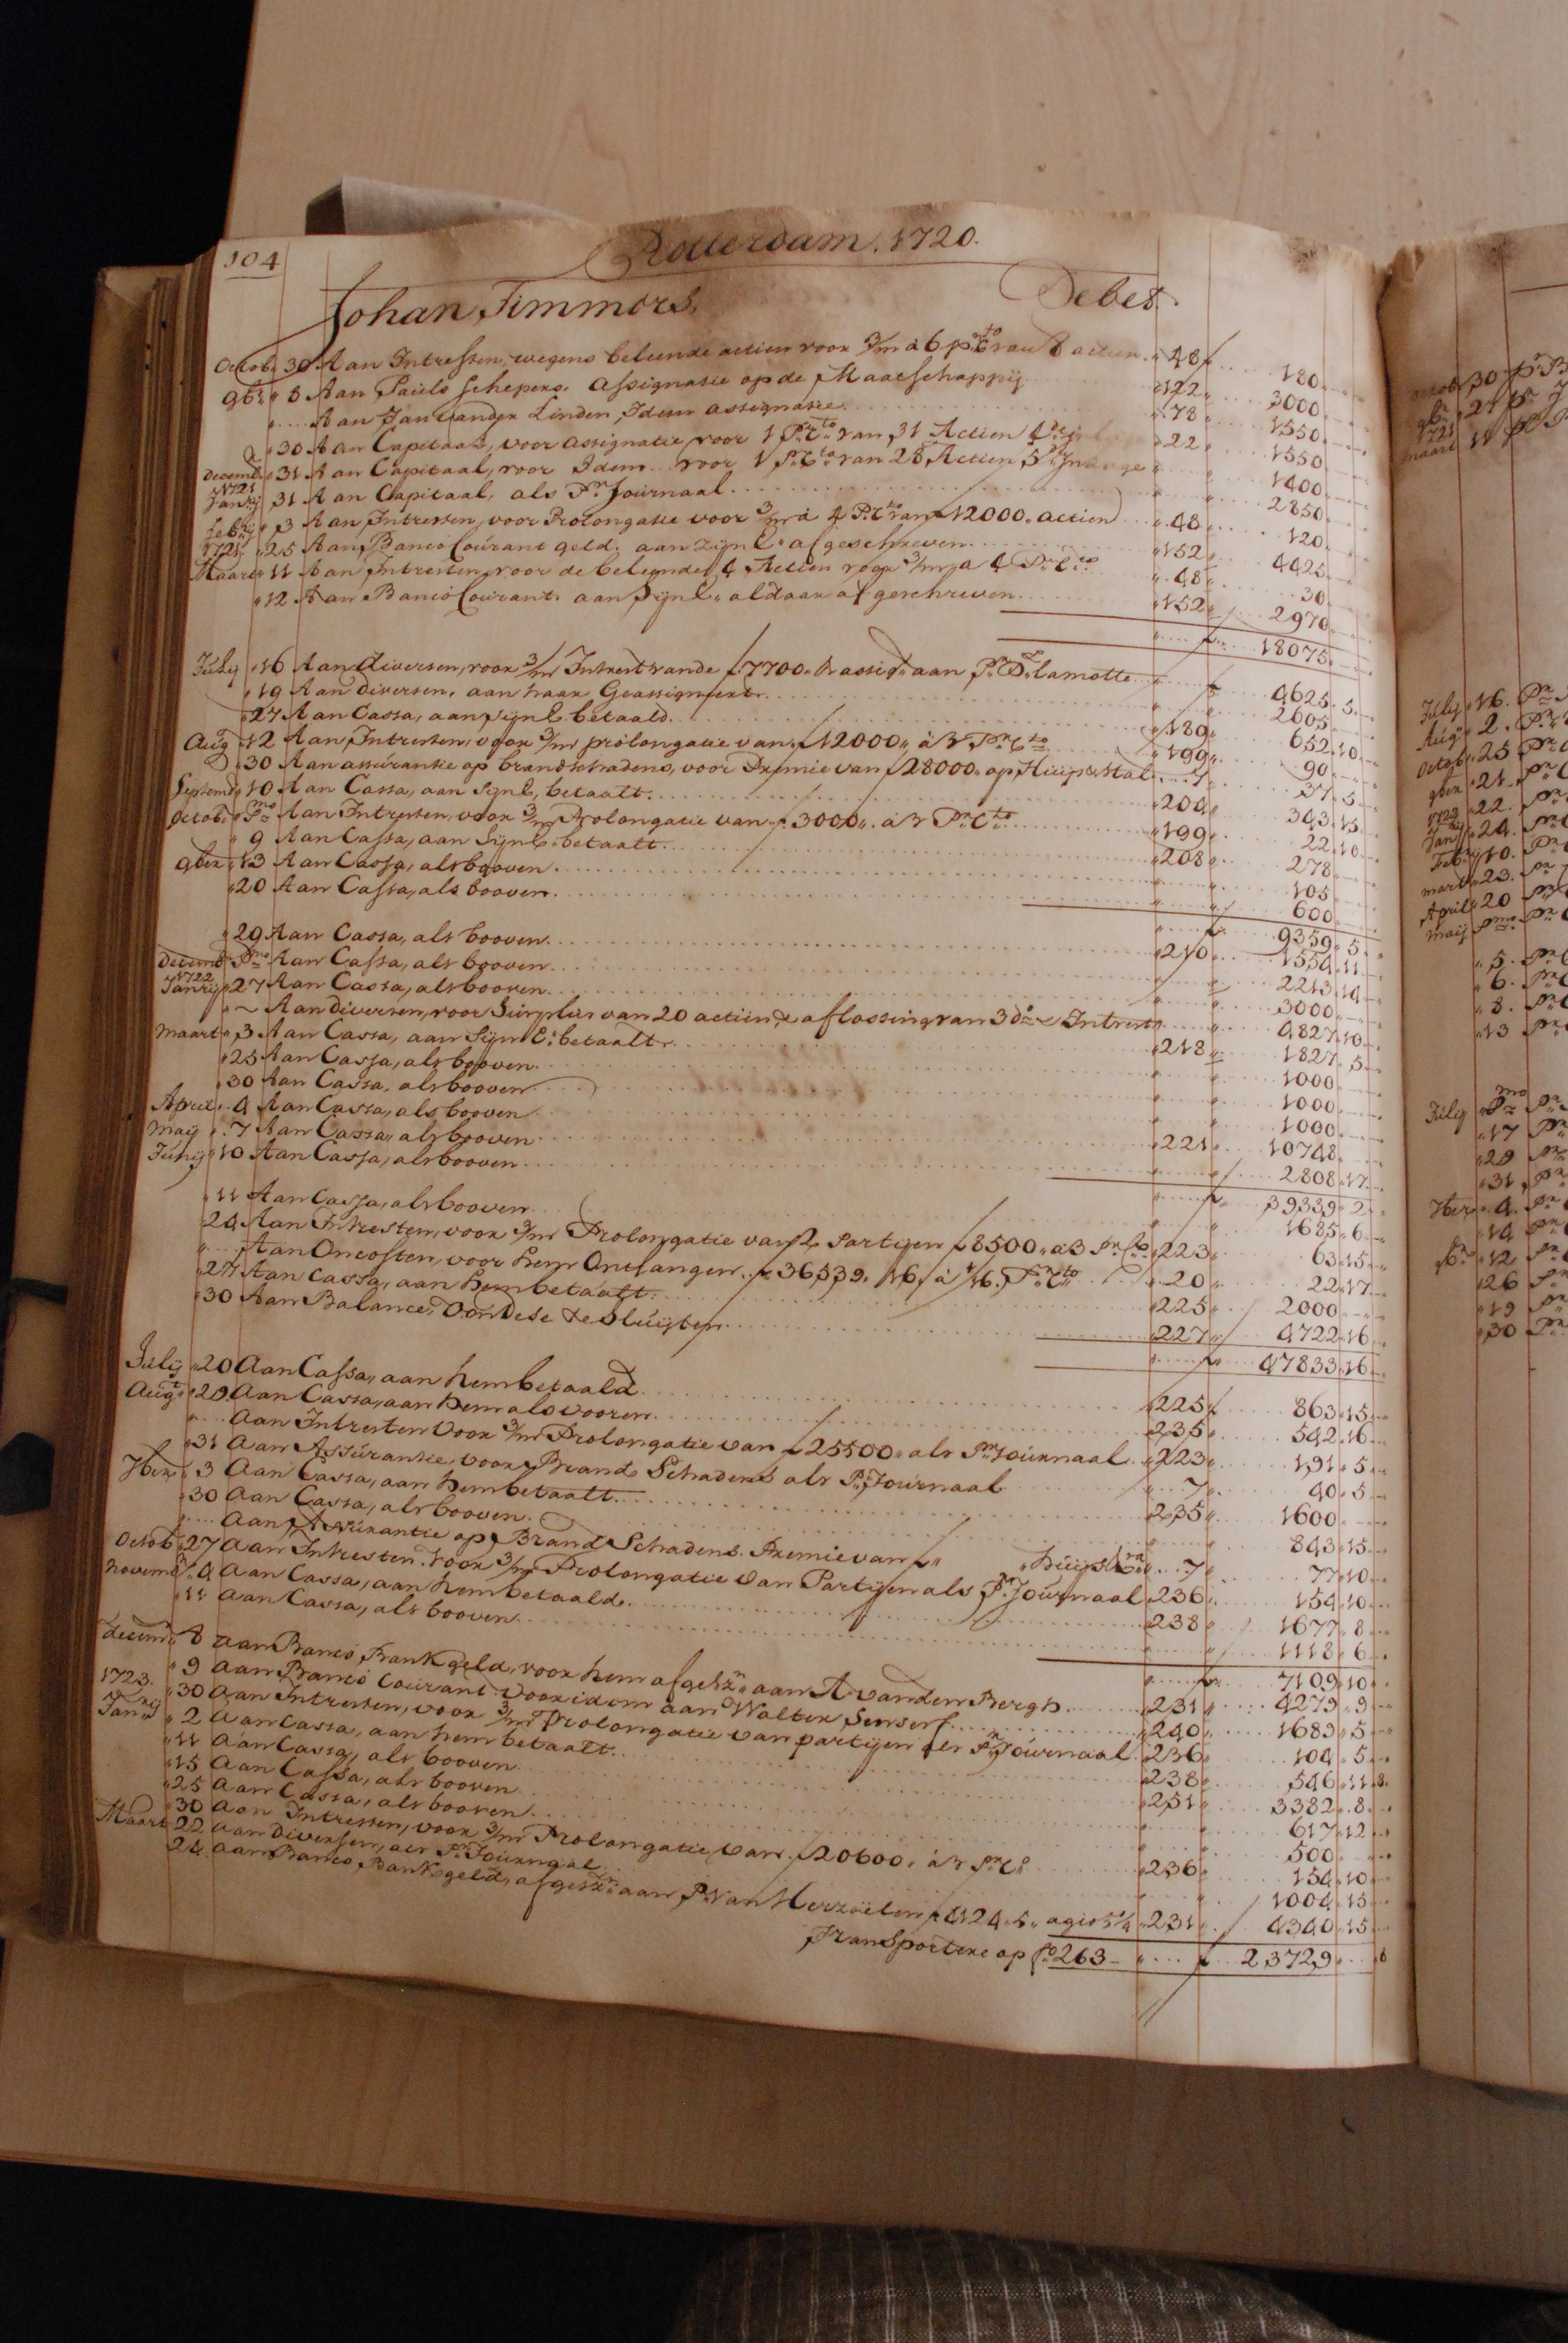 104 Rotterdam. 1720.
Johan Timmers. Debet.
Octob. 30 Aan Intressen, wegens beleende actien voor 3/m a 6 p Cto van 8 actien 48 180
9br 8 Aan Paulo Schepers. Assignatie op de Maatschappij 122 3000
Aan Jan vander Linden, Idem assignatie 78 1550
30 Aan Capitaal, voor assignatie voor 1 Pr Cto van 31 Actien 22 1550
Decemb. 31 Aan Capitaal, voor Idem voor 1 Pr Cto van 28 Actien 1400
1721 Janrij 31 Aan Capitaal, als Pr Journaal 2850
Febrij 3 Aan Intressen, voor Prolongatie voor 3/m a 4 Pr Cto van 12000 actien 48 120
1721 25 Aan Banco Courant geld, aan zijn E. afgeschreven 152 4425
Maart 11 Aan Intressen voor de beleende 4 Actien voor 3/m a 4 Pr Cto 48 30
12 Aan Banco Courant, aan Sijn E. aldaar afgeschreven 152 2970
f 18075
Julij 16 Aan diversen, voor 3/m Intrest vande f 7700 aan Pr D. lamotte 4625 5
19 Aan diversen, aan haar Geassigneert 2605
27 Aan Cassa, aan sijn E. betaald 189 652 10
Aug 12 Aan Intressen, voor 3/m prolongatie van f 12000 a 3 Pr Cto 199 90
30 Aan assurantie op brandschadens, voor Premie van f 28000 op Huijs & Stal 7 37 5
Septemb 10 Aan Cassa, aan Sijn E, betaalt 204 343 15
Octob. Pmo Aan Intressen, voor 3/m Prolongatie van f 3000 a 3 Pr Cto 199 22 10
9 Aan Cassa, aan Sijn E. betaalt 208 278
9ber 13 Aan Cassa, als booven 105
20 Aan Cassa, als booven 600
f 9359 5
29 Aan Cassa, als booven 210 1554 11
Decemb Pmo Aan Cassa, als booven 2213 14
1722 Janrij 27 Aan Cassa, als booven 3000
Aan diversen, voor Surplus van 20 actien & aflossing van 3 do & Intrest 4827 10
Maart 3 Aan Cassa, aan Sijn E. betaalt 218 1827 5
25 Aan Cassa, als booven 1000
30 Aan Cassa, als booven 1000
April 4 Aan Cassa, als booven 1000
Maij 7 Aan Cassa, als booven 221 10748
Junij 10 Aan Cassa, als booven 2808 17
f 39339 2
11 Aan Cassa, als booven 1685 6
24 Aan Intressen, voor 3/m Prolongatie van 2 Partijen f 8500 a 3 Pr Cto 223 63 15
Aan Oncosten, voor hem Ontfangen f 36539. 16. a 1/16 Pr Cto 20 22 17
27 Aan Cassa, aan hem betaalt 225 2000
30 Aan Balance, Om Dese te Sluijten 227 4722 16
f 47833 16
Julij 20 Aan Cassa, aan hem betaald 225 863 15
Augt 29 Aan Cassa, aan hem als vooren 235 542 16
Aan Intresten Voor 3/m Prolongatie van f 25500 als Pr Journaal 223 191 5
31 Aan Assurantie, voor Brand Schadens als Pr Journaal 7 40 5
7ber 3 Aan Cassa, aan hem betaalt 235 1600
30 Aan Cassa, als booven 843 15
Aan Assurantie op Brand Schadens. Premie van f Huijs &ra 7 77 10
Octob 27 Aan Intresten Voor 3/m Prolongatie van Partijen als Pr Journaal 236 154 10
Novemb 4 Aan Cassa, aan hem betaald 238 1677 8
11 Aan Cassa, als booven 1118 6
f 7109 10
Decem 8 Aan Banco, Bank geld, voor hem afgeschr. aan A vanden Bergh 231 4279 9
9 Aan Banco Courant voor idem aan Walter Senserf 240 1683 5
30 Aan Intressen, voor 3/m Prolongatie van partijen als Pr Journaal 236 104 5
1723. Janrij 2 Aan Cassa, aan hem betaalt 238 546 11 8
11 Aan Cassa, als booven 251 3382 8
15 Aan Cassa, als booven 617 12
25 Aan Cassa, als booven 500
30 Aan Intressen, voor 3/m Prolongatie, van f 20600. a 3 Pr Cto 236 154 10
Maart 22 Aan diversen, als Pr Journaal 1004 15
24 Aan Banco, Bank geld, afgeschr. aan P. van Herzeelen f 4124. 5. agio 5 1/4 231 4340 15
Transportere op fo 263 f 23729 8